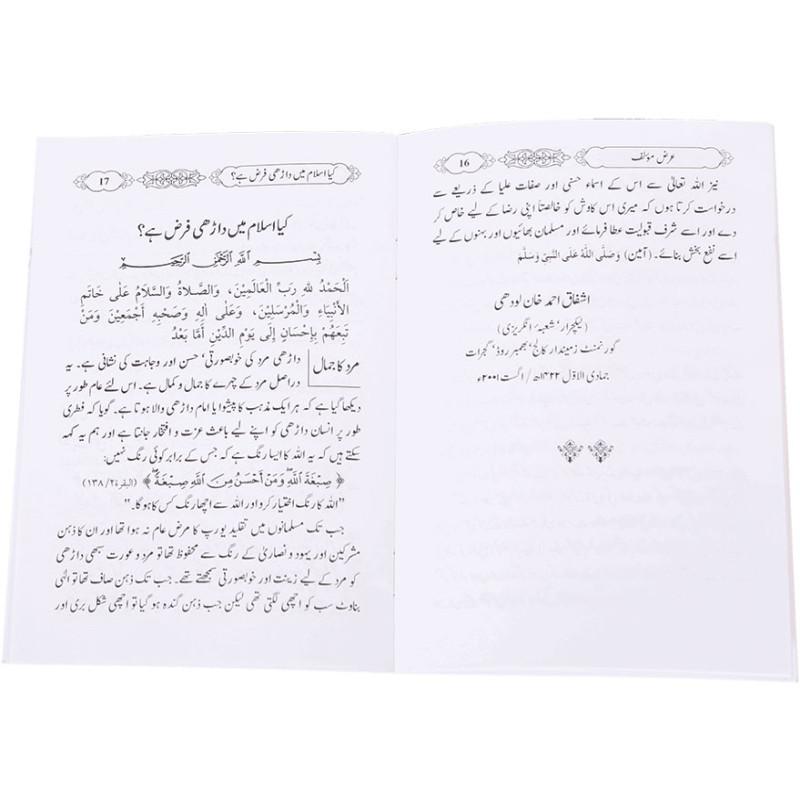 عرض مؤلف
16
نیز اللہ تعالیٰ سے اس کے اسماء حسنی اور صفات علیا کے ذریعے سے
درخواست کرتا ہوں کہ میری اس کاوش کو خالصتاً اپنی رضا کے لیے خاص کر
دے اور اسے شرف قبولیت عطا فرمائے اور مسلمان بھائیوں اور بہنوں کے لیے
اسے نفع بخش بنائے۔ (آمین) وَصَلَّى اللّٰهُ عَلَى النَّبِيِّ وَسَلَّمَ
اشفاق احمد خان لودھی
(لیکچرار' شعبہء انگریزی)
گورنمنٹ زمیندار کالج' بھمبر روڈ' گجرات
جمادی الاوّل ۱۴۲۲ھ / اگست ۲۰۰۱ء
کیا اسلام میں داڑھی فرض ہے؟
17
کیا اسلام میں داڑھی فرض ہے؟
بِسْمِ اللّٰهِ الرَّحْمٰنِ الرَّحِيْمِ
اَلْحَمْدُ لِلّٰهِ رَبِّ الْعَالَمِيْنَ، وَالصَّلَاةُ وَالسَّلَامُ عَلٰى خَاتَمِ
الْأَنْبِيَاءِ وَالْمُرْسَلِيْنَ، وَعَلٰى اٰلِهِ وَصَحْبِهِ أَجْمَعِيْنَ وَمَنْ
تَبِعَهُمْ بِإِحْسَانٍ إِلٰى يَوْمِ الدِّيْنِ أَمَّا بَعْدُ
مرد کا جمال
داڑھی مرد کی خوبصورتی' حسن اور وجاہت کی نشانی ہے۔ یہ
دراصل مرد کے چہرے کا جمال و کمال ہے۔ اس لئے عام طور پر
دیکھا گیا ہے کہ ہر ایک مذہب کا پیشوا یا امام داڑھی والا ہوتا ہے۔ گویا کہ فطری
طور پر انسان داڑھی کو اپنے لیے باعث عزت و افتخار جانتا ہے اور ہم یہ کہہ
سکتے ہیں کہ یہ اللہ کا ایسا رنگ ہے کہ جس کے برابر کوئی رنگ نہیں:
﴿ صِبْغَةَ اللّٰهِ وَمَنْ أَحْسَنُ مِنَ اللّٰهِ صِبْغَةً ﴾ (البقرة ۲/ ۱۳۸)
"اللہ کا رنگ اختیار کرو اور اللہ سے اچھا رنگ کس کا ہوگا۔"
جب تک مسلمانوں میں تقلید یورپ کا مرض عام نہ ہوا تھا اور ان کا ذہن
مشرکین اور یہود و نصاریٰ کے رنگ سے محفوظ تھا تو مرد و عورت سبھی داڑھی
کو مرد کے لیے زینت اور خوبصورتی سمجھتے تھے۔ جب تک ذہن صاف تھا تو الٰہی
بناوٹ سب کو اچھی لگتی تھی لیکن جب ذہن گندہ ہو گیا تو اچھی شکل بری اور